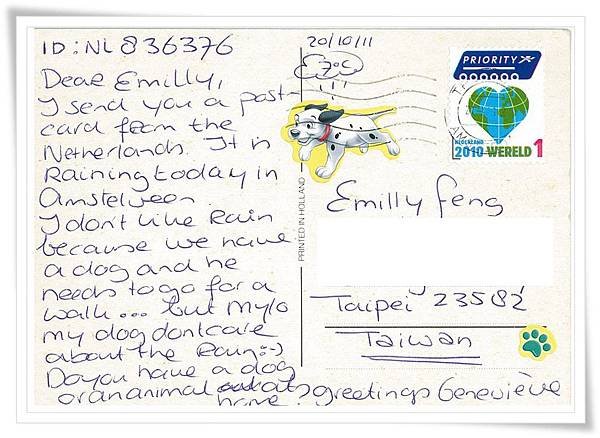 ID: NL 836376
Dear Emilly,
I send you a post-
card from the
Netherlands. It is
Raining today in
Amstelveen.
I don't like Rain
because we have
a dog and he
needs to go for a
walk ... but Mylo
my dog dont care
about the Rain :-)
Do you have a dog
or an animal at
home? greetings Geneviève
20/10/11
7°C
PRIORITY
NEDERLAND
2010 WERELD 1
PRINTED IN HOLLAND
Emilly Feng
Taipei 23582
Taiwan